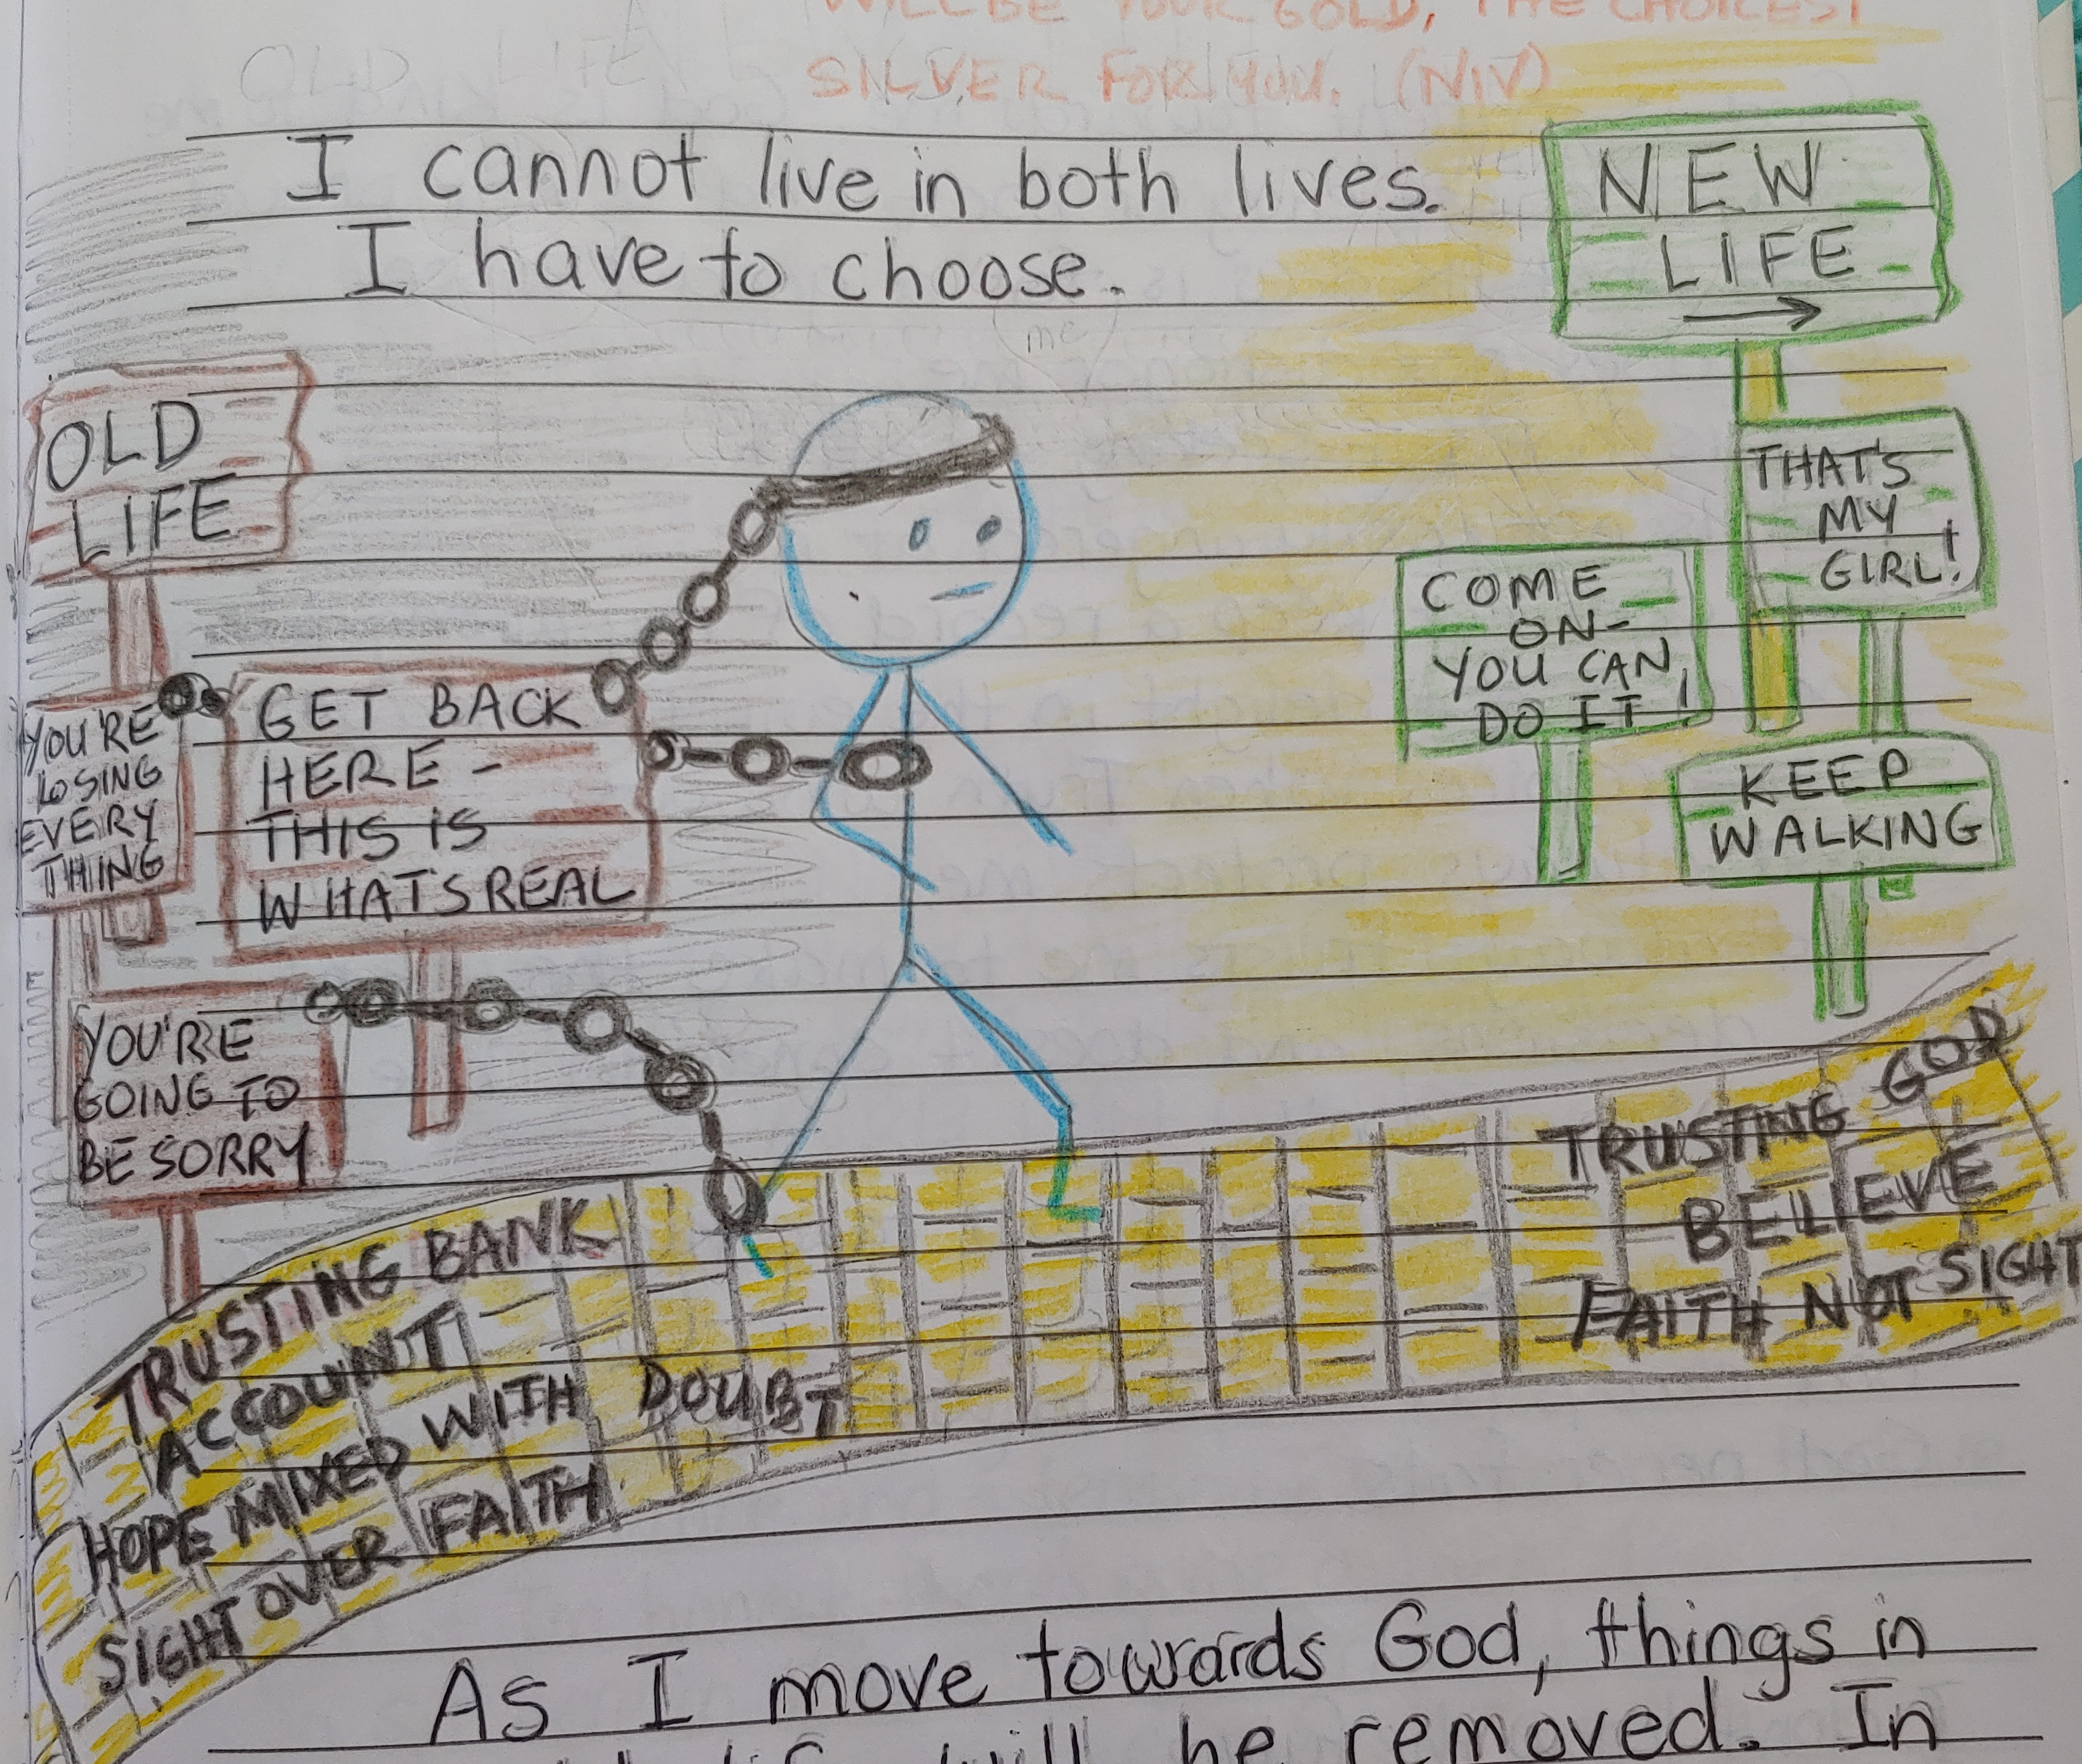 WILL BE YOUR GOLD, THE CHOICEST
SILVER FOR YOU. (NIV)
OLD LIFE
I cannot live in both lives.
I have to choose.
me
NEW
LIFE
OLD
LIFE
YOU'RE
LOSING
EVERY
THING
GET BACK
HERE -
THIS IS
WHAT'S REAL
YOU'RE
GOING TO
BE SORRY
THAT'S
MY
GIRL!
COME
ON-
YOU CAN
DO IT!
KEEP
WALKING
TRUSTING BANK
ACCOUNT
HOPE MIXED WITH DOUBT
SIGHT OVER FAITH
TRUSTING GOD
BELIEVE
FAITH NOT SIGHT
As I move towards God, things in
will be removed. In